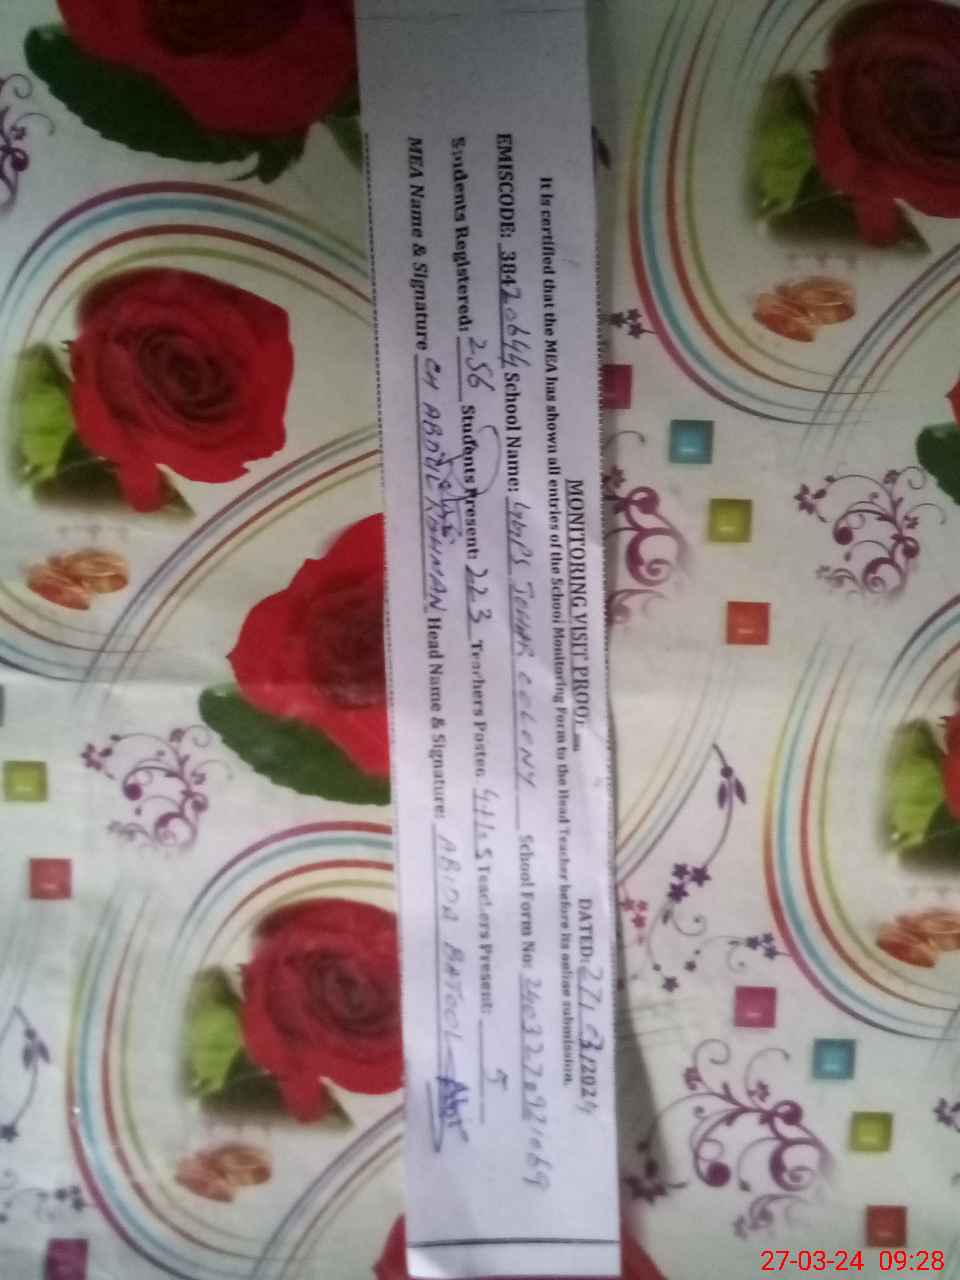 MONITORING VISIT PROOF
DATED: 27/03/2024
It is certified that the MEA has shown all entries of the School Monitoring Form to the Head Teacher before its online submission.
EMISCODE: 38420644 School Name: JOHAR COLONY School Form No:
Students Registered: 256 Students Present: 223 Teachers Posted Teachers Present: 5
MEA Name & Signature CH ABDUL RAHMAN Head Name & Signature: ABIDA BATOOL
27-03-24 09:28